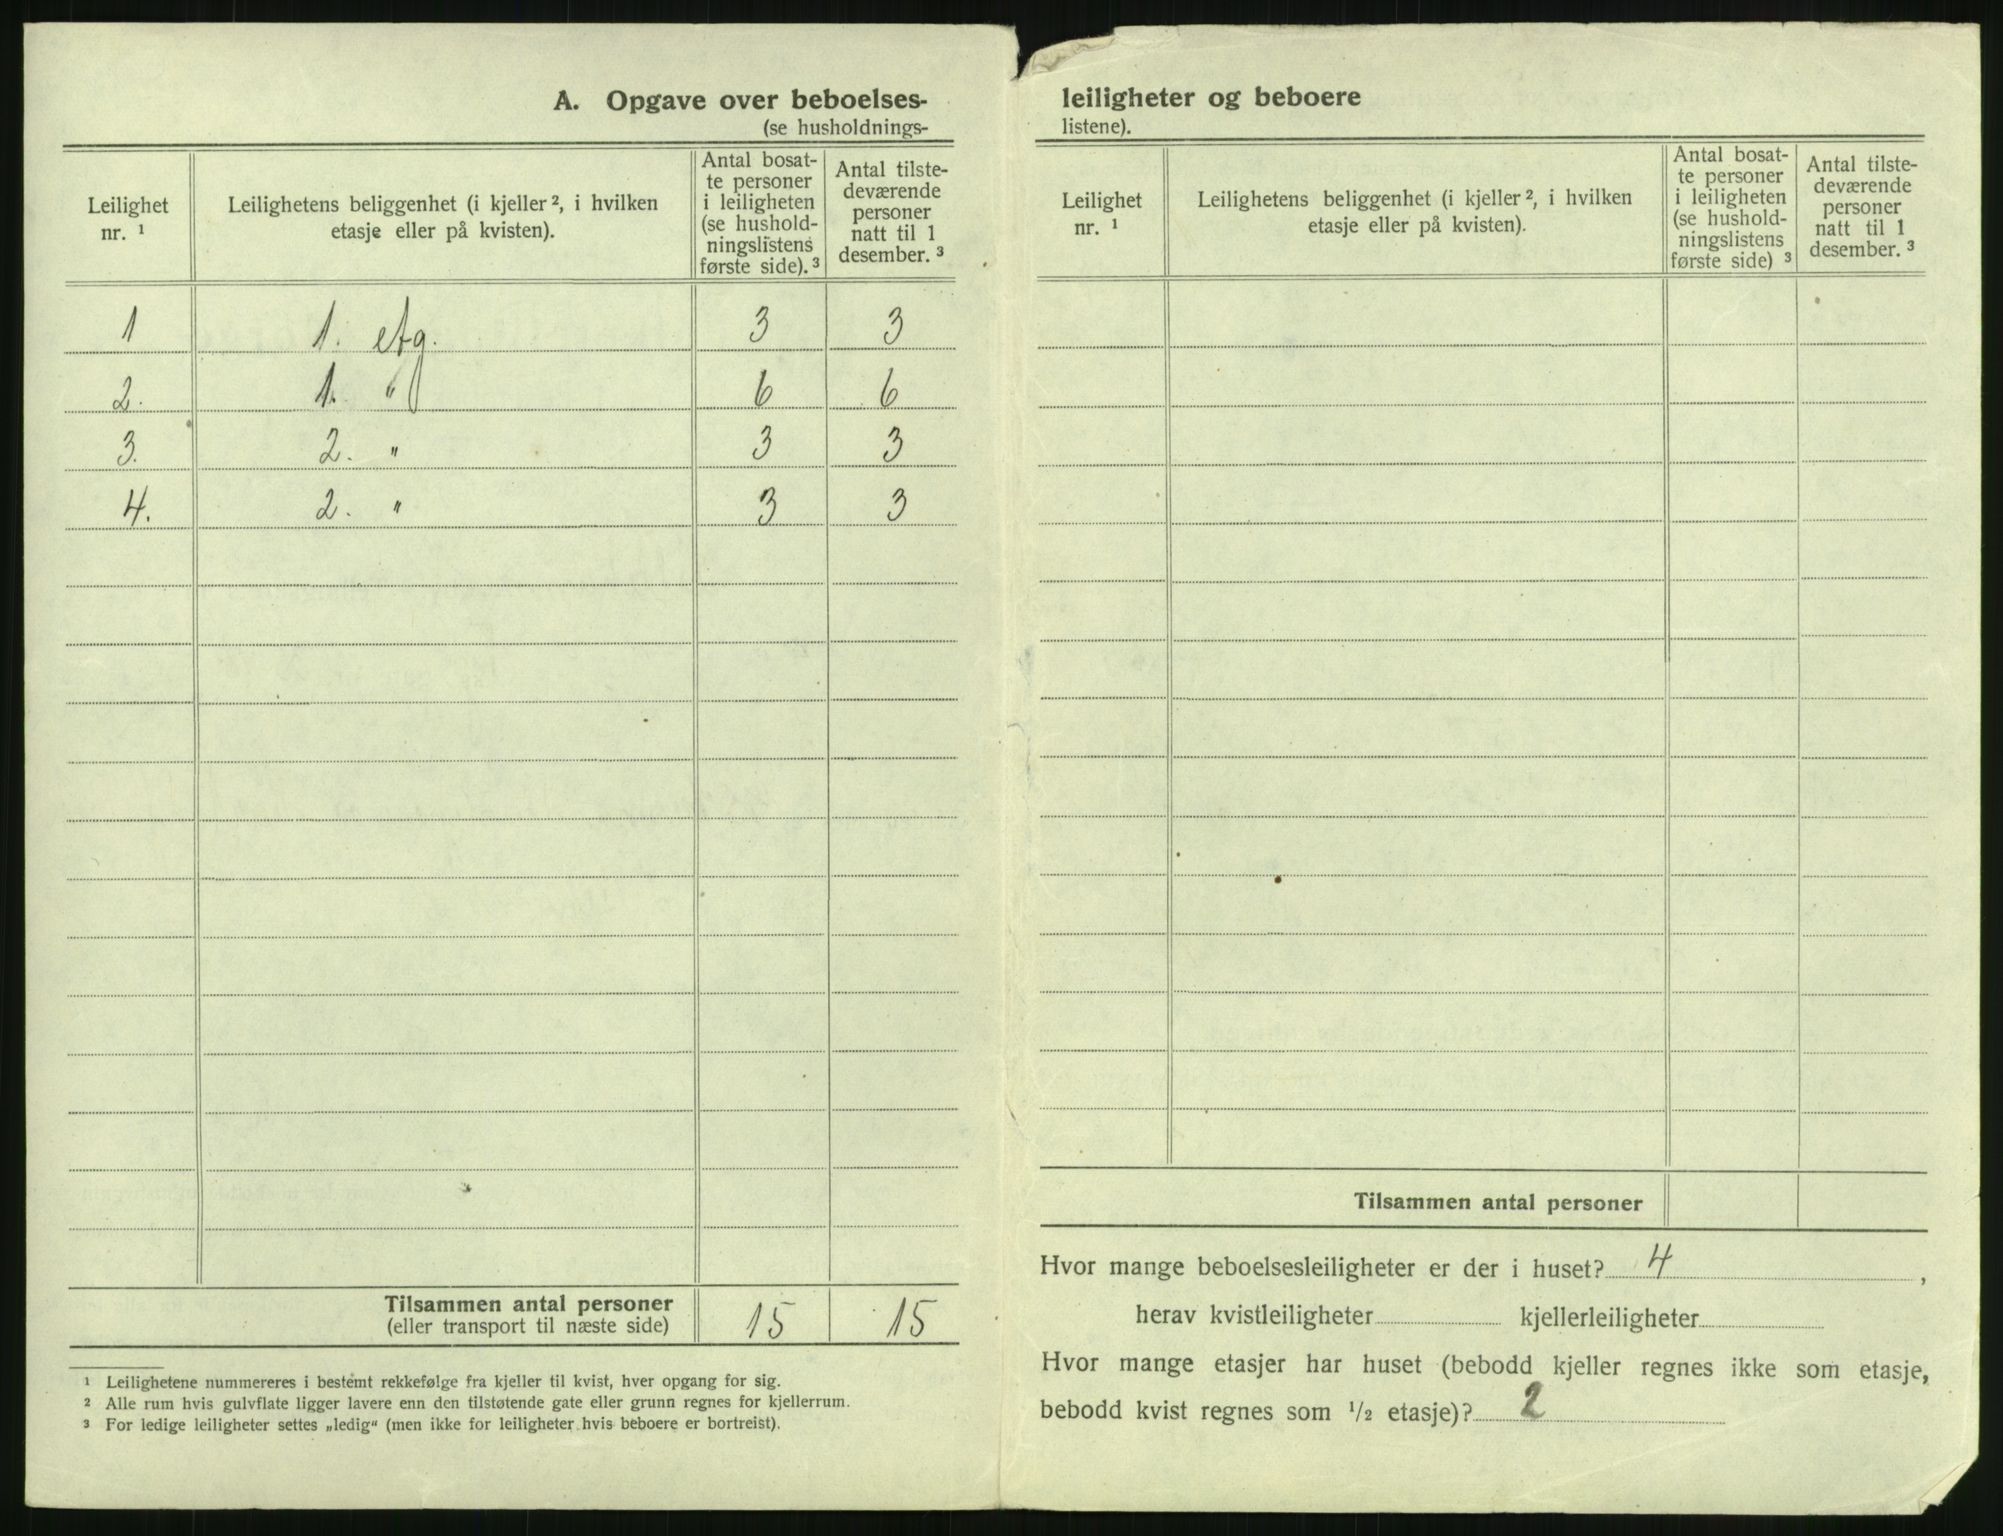 A. Opgave over beboelses-
(se husholdnings-
Leilighet nr. ¹
Leilighetens beliggenhet (i kjeller ², i hvilken etasje eller på kvisten).
Antal bosat-
te personer
i leiligheten
(se hushold-
ningslistens
første side). ³
Antal tilste-
deværende
personer
natt til 1
desember. ³
1 1. etg. 3 3
2. 1. " 6 6
3. 2. " 3 3
4. 2. " 3 3
Tilsammen antal personer
(eller transport til næste side) 15 15
¹ Leilighetene nummereres i bestemt rekkefølge fra kjeller til kvist, hver opgang for sig.
² Alle rum hvis gulvflate ligger lavere enn den tilstøtende gate eller grunn regnes for kjellerrum.
³ For ledige leiligheter settes „ledig“ (men ikke for leiligheter hvis beboere er bortreist).
leiligheter og beboere
listene).
Leilighet nr. ¹
Leilighetens beliggenhet (i kjeller ², i hvilken etasje eller på kvisten).
Antal bosat-
te personer
i leiligheten
(se hushold-
ningslistens
første side) ³
Antal tilste-
deværende
personer
natt til 1
desember. ³
Tilsammen antal personer
Hvor mange beboelsesleiligheter er der i huset? 4 ,
herav kvistleiligheter kjellerleiligheter
Hvor mange etasjer har huset (bebodd kjeller regnes ikke som etasje,
bebodd kvist regnes som ¹/₂ etasje)? 2